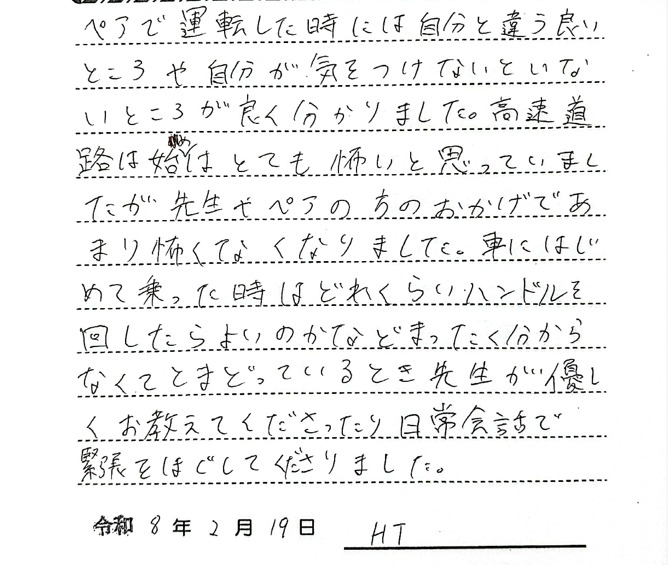 ペアで運転した時には自分と違う良い
ところや自分が気をつけないといな
いところが良く分かりました。高速道
路は始めはとても怖いと思っていまし
たが先生やペアの方のおかげであ
まり怖くてなくなりました。車にはじ
めて乗った時はどれくらいハンドルを
回したらよいのかなどまったく分から
なくてとまどっているとき先生が優し
くお教えてくださったり日常会話で
緊張をほぐしてくださりました。
令和 8 年 2 月 19 日 HT